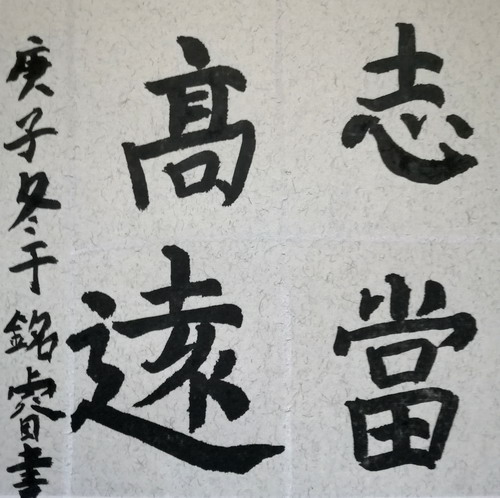 志當
髙遠
庚子冬于銘睿書